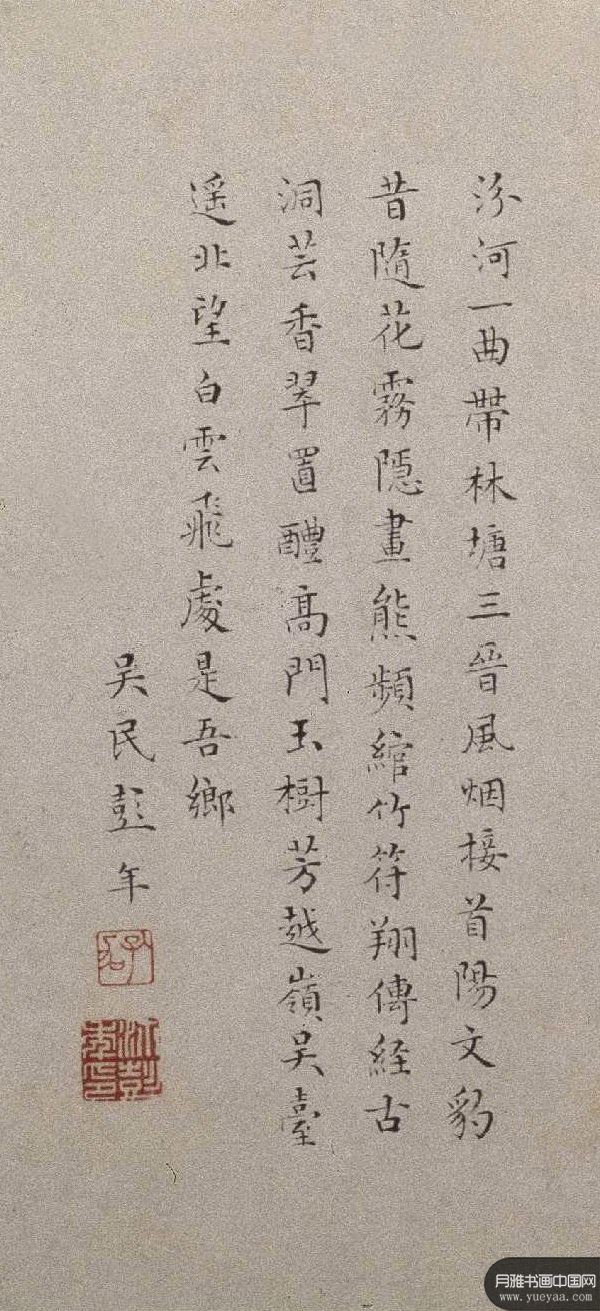 汾河一曲帶林塘三晉風烟接首陽文豹
昔隨花霧隱畫熊頻綰竹符翔傳經古
洞芸香翠置醴高門玉樹芳越嶺吳臺
遥北望白雲飛處是吾鄉
吴民彭年
月雅书画中国网
www.yueyaa.com